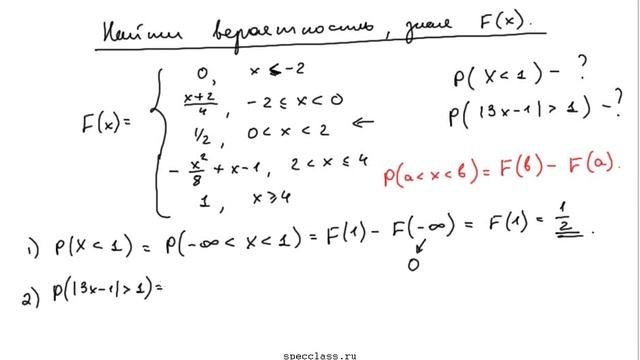 Найти вероятность, зная F(x).
F(x)= { 0, x < -2
(x+2)/4, -2 ≤ x < 0
1/2, 0 < x < 2 ←
-x²/8 + x-1, 2 < x ≤ 4
1, x ⩾ 4
P(X<1) - ?
P(|3x-1|>1) - ?
P(a<x<b) = F(b) - F(a).
1) P(X<1) = P(-∞<X<1) = F(1) - F(-∞) = F(1) = 1/2.
0
2) P(|3x-1|>1)=
specclass.ru